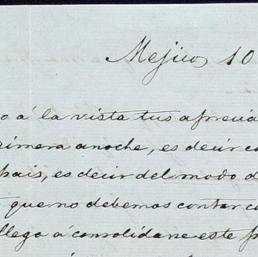 Mejico, 10
o á la vista tus aprecia
rimera anoche, es decir co
pais, es decir del modo d
que no debemos contar c
llega á consolidarse este p